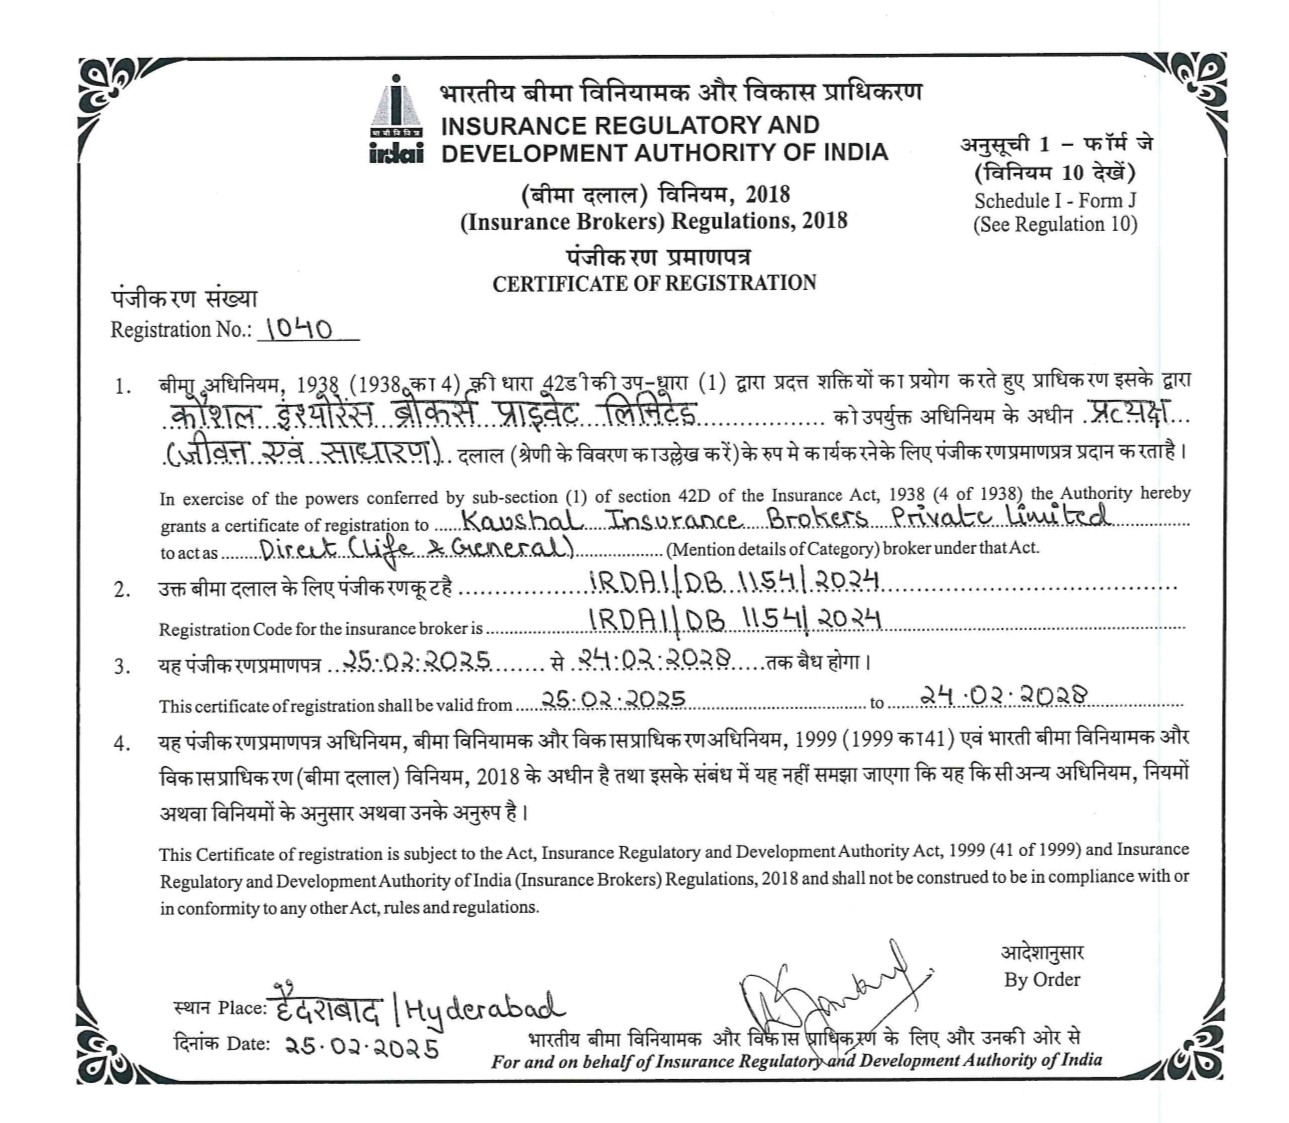 भारतीय बीमा विनियामक और विकास प्राधिकरण
INSURANCE REGULATORY AND
DEVELOPMENT AUTHORITY OF INDIA
भा बी वि वि प्रा
irdai
अनुसूची 1 – फॉर्म जे
(विनियम 10 देखें)
Schedule I - Form J
(See Regulation 10)
(बीमा दलाल) विनियम, 2018
(Insurance Brokers) Regulations, 2018
पंजीकरण प्रमाणपत्र
CERTIFICATE OF REGISTRATION
पंजीकरण संख्या
Registration No.: 1040
1. बीमा अधिनियम, 1938 (1938 का 4) की धारा 42डी की उप-धारा (1) द्वारा प्रदत्त शक्तियों का प्रयोग करते हुए प्राधिकरण इसके द्वारा
कौशल इंश्योरेंस ब्रोकर्स प्राइवेट लिमिटेड को उपर्युक्त अधिनियम के अधीन प्रत्यक्ष
(जीवन एवं साधारण) दलाल (श्रेणी के विवरण का उल्लेख करें) के रुप मे कार्य करने के लिए पंजीकरण प्रमाणप्रत्र प्रदान करता है।
In exercise of the powers conferred by sub-section (1) of section 42D of the Insurance Act, 1938 (4 of 1938) the Authority hereby
grants a certificate of registration to Kaushal Insurance Brokers Private Limited
to act as Direct (Life & General) (Mention details of Category) broker under that Act.
2. उक्त बीमा दलाल के लिए पंजीकरण कूट है IRDAI/DB 1154/2024
Registration Code for the insurance broker is IRDAI/DB 1154/2024
3. यह पंजीकरण प्रमाणपत्र 25.02.2025 से 24.02.2028 तक बैध होगा।
This certificate of registration shall be valid from 25.02.2025 to 24.02.2028
4. यह पंजीकरण प्रमाणपत्र अधिनियम, बीमा विनियामक और विकास प्राधिकरण अधिनियम, 1999 (1999 का 41) एवं भारती बीमा विनियामक और
विकास प्राधिकरण (बीमा दलाल) विनियम, 2018 के अधीन है तथा इसके संबंध में यह नहीं समझा जाएगा कि यह किसी अन्य अधिनियम, नियमों
अथवा विनियमों के अनुसार अथवा उनके अनुरुप है।
This Certificate of registration is subject to the Act, Insurance Regulatory and Development Authority Act, 1999 (41 of 1999) and Insurance
Regulatory and Development Authority of India (Insurance Brokers) Regulations, 2018 and shall not be construed to be in compliance with or
in conformity to any other Act, rules and regulations.
आदेशानुसार
By Order
स्थान Place: हैदराबाद / Hyderabad
दिनांक Date: 25.02.2025
भारतीय बीमा विनियामक और विकास प्राधिकरण के लिए और उनकी ओर से
For and on behalf of Insurance Regulatory and Development Authority of India